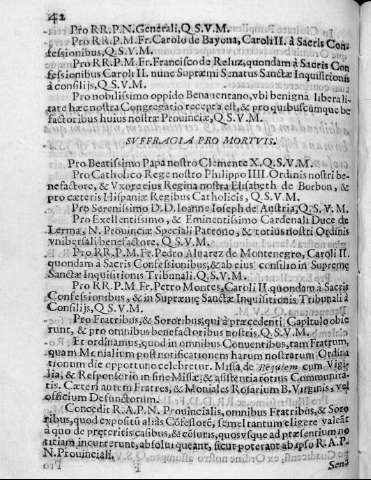 42
Pro RR.P.N.Generali, Q.S.V.M.
Pro RR.P.M.Fr.Carolo de Bayona, Caroli II. à Sacris Con-
fessionibus, Q.S.V.M.
Pro RR.P.M.Fr.Francisco de Reluz, quondam à Sacris Con
fessionibus Caroli II. nunc Supræmi Senatus Sanctæ Inquisitionis
à consilijs, Q.S.V.M.
Pro nobilissimo oppido Benamenzano, vbi benigna liberali-
tate hæc nostra Congregatio recepta est, & pro quibuscumque be
factoribus huius nostræ Prouinciæ, Q.S.V.M.
SVFFRAGIA PRO MORTVIS.
Pro Beatissimo Papa nostro Clemente X.Q.S.V.M.
Pro Catholico Rege nostro Philippo IIII. Ordinis nostri be-
nefactore, & Vxore eius Regina nostra Elisabeth de Borbon, &
pro cæteris Hispaniæ Regibus Catholicis, Q.S.V.M.
Pro Serenissimo D.D.Ioanne Ioseph de Austria, Q.S.V.M.
Pro Exellentissimo, & Eminentissimo Cardenali Duce de
Lerma, N. Prouinciæ Speciali Patrono, & totius nostri Ordinis
vniuersali benefactore, Q.S.V.M.
Pro RR.P.M.Fr.Pedro Aluarez de Montenegro, Caroli II.
quondam à Sacris Confessionibus, & ab eius consilio in Supreme
Sanctæ Inquisitionis Tribunali Q.S.V.M.
Pro RR.P.M.Fr.Petro Montes, Caroli II. quondam à Sacris
Confessionibus, & in Supræme Sanctæ Inquisitionis Tribunali à
Consilijs, Q.S.V.M.
Pro Fratribus, & Sororibus, qui à præcedenti Capitulo obie
runt, & pro omnibus benefactoribus nostris, Q.S.V.M.
Et ordinamus, quod in omnibus Conuentibus, tam Fratrum,
quam Monialium post notificationem harum nostrarum Ordina
tionum die opportuno celebretur Missa de Requiem cum Vigi-
lia, & Responsorio in fine Missæ, & assistentia totius Communita-
tis. Cæteri autem Fratres, & Moniales Rosarium B.Virginis, vel
officium Defunctorum.
Concedit R.A.P.N. Prouincialis, omnibus Fratribus, & Soro
ribus, quod expositũ aliàs Cõfesorẽ, semel tantum eligere valeãt
à quo de præteritis casibus, & cẽsuris, quos vsque ad præsentium no
titiam incurrerunt, absolui queant, sicut poterant ab ipso R.A.P.
N.Prouinciali.
Senã